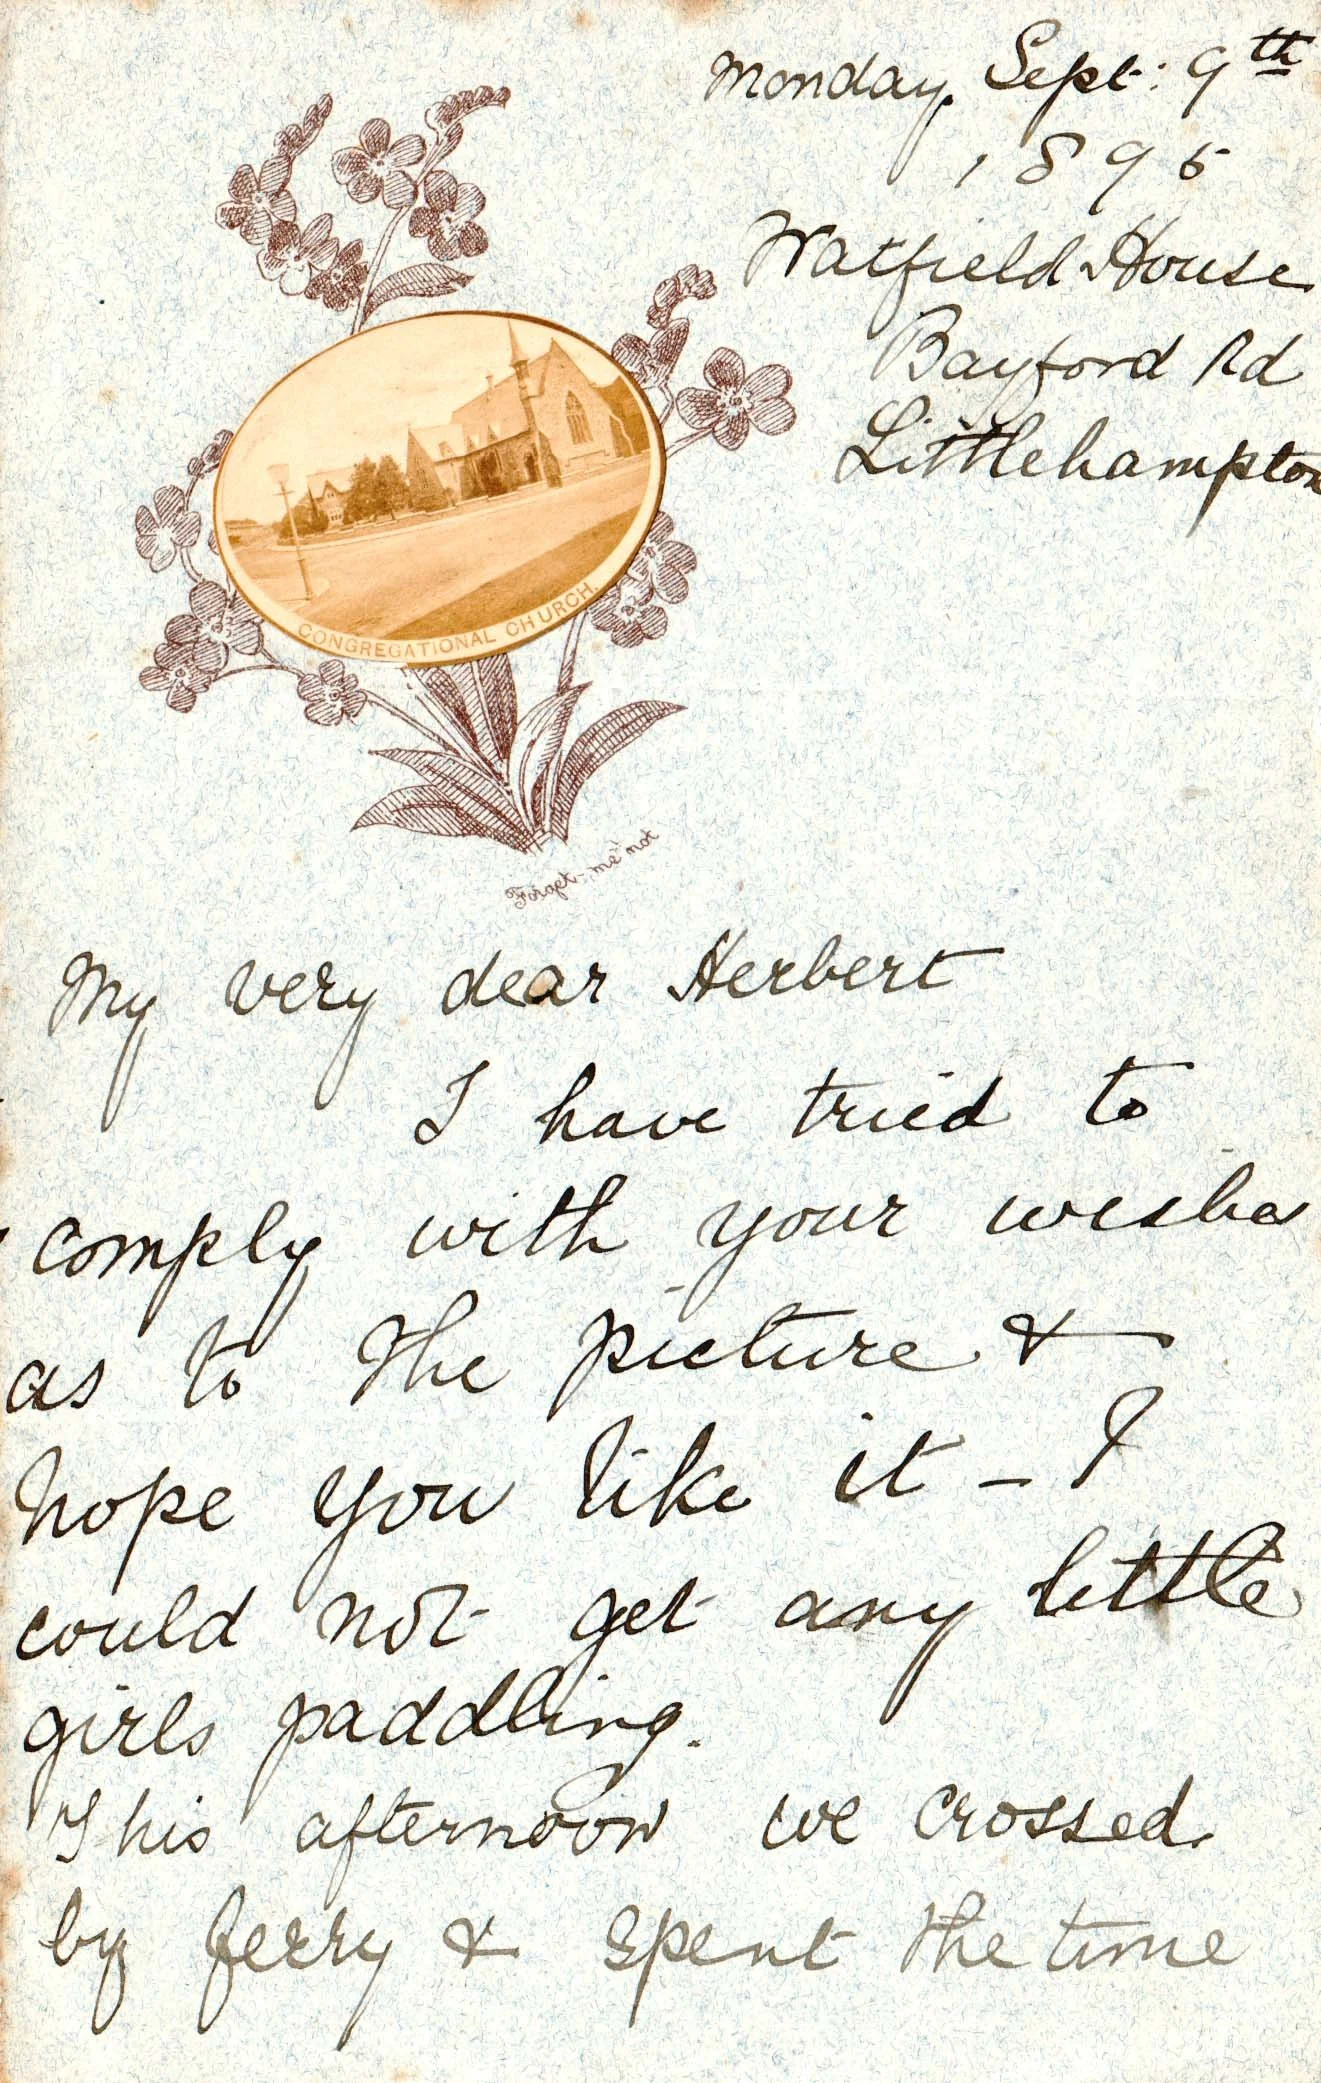 Monday, Sept: 9th
1895
Watfield House
Bayford Rd
Littlehampton
CONGREGATIONAL CHURCH.
Forget-me-not
My very dear Herbert
I have tried to
comply with your wishes
as to the picture &
hope you like it - I
could not get any little
girls paddling.
This afternoon we crossed
by ferry & spent the time